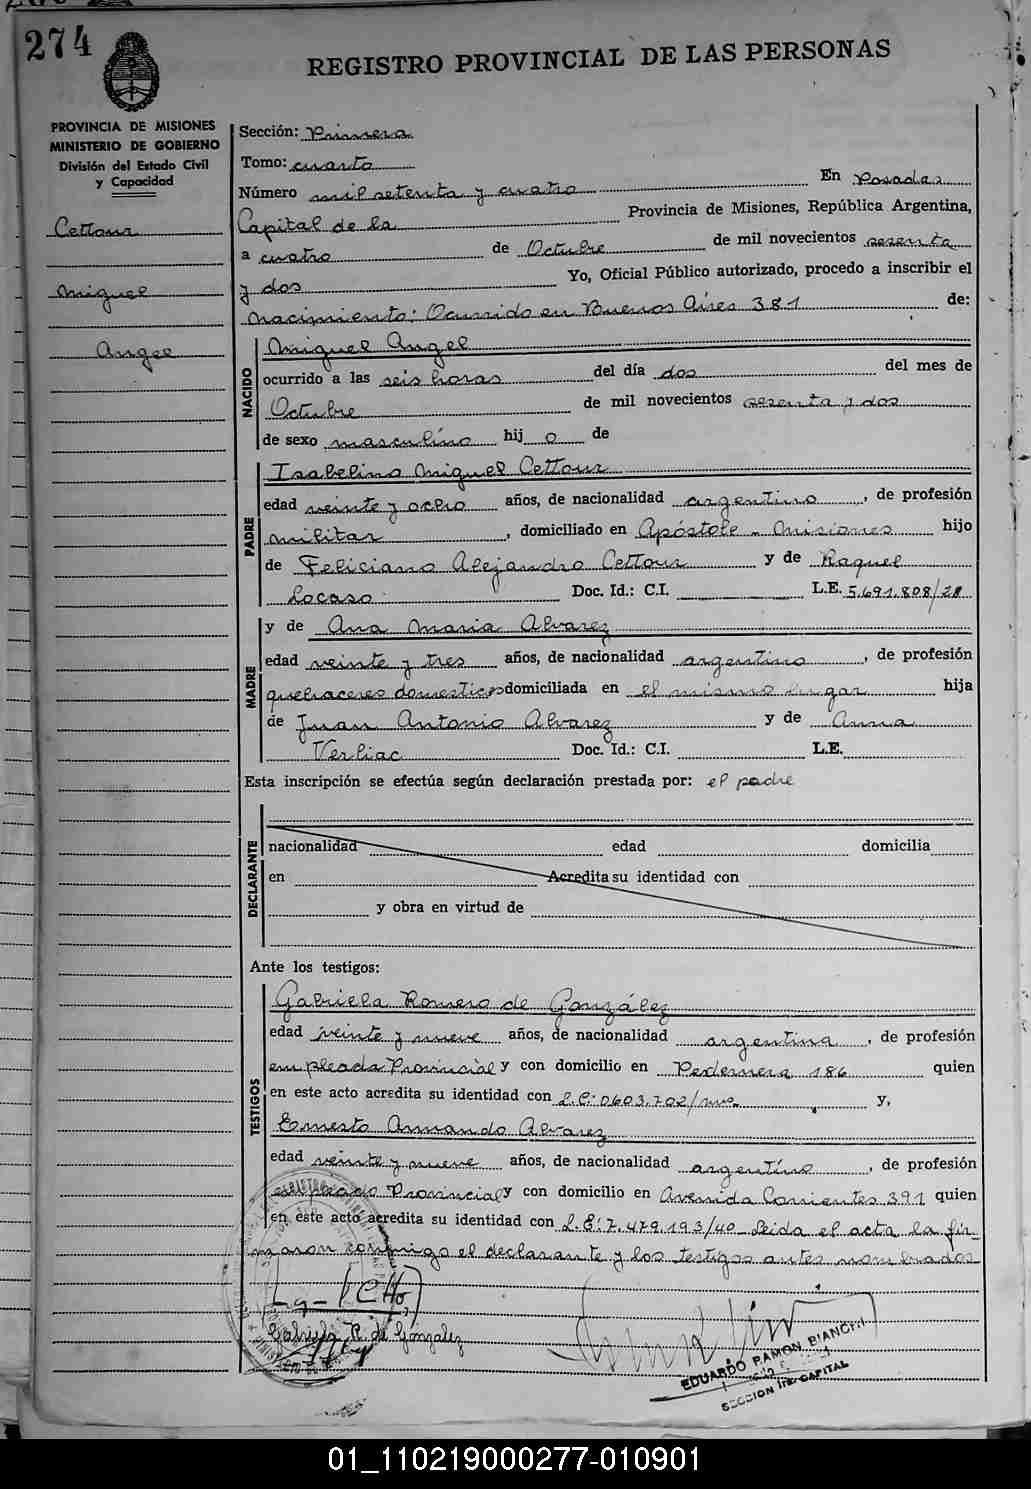 274
REGISTRO PROVINCIAL DE LAS PERSONAS
PROVINCIA DE MISIONES
MINISTERIO DE GOBIERNO
División del Estado Civil
y Capacidad
Cettour
Miguel
Angel
Sección: Primera
Tomo: cuarto
Número mil setenta y cuatro En Posadas
Capital de la Provincia de Misiones, República Argentina,
a cuatro de Octubre de mil novecientos sesenta
y dos Yo, Oficial Público autorizado, procedo a inscribir el
Nacimiento: Ocurrido en Buenos Aires 381 de:
NACIDO
Miguel Angel
ocurrido a las seis horas del día dos del mes de
Octubre de mil novecientos sesenta y dos
de sexo masculino hij o de
PADRE
Isabelino Miguel Cettour
edad veinte y ocho años, de nacionalidad argentino, de profesión
militar, domiciliado en Apóstole - Misiones hijo
de Feliciano Alejandro Cettour y de Raquel
Locaso Doc. Id.: C.I. L.E. 5.691.808/28
MADRE
y de Ana Maria Alvarez
edad veinte y tres años, de nacionalidad argentino, de profesión
quehaceres domesticos domiciliada en el mismo lugar hija
de Juan Antonio Alvarez y de Anna
Verliac Doc. Id.: C.I. L.E.
Esta inscripción se efectúa según declaración prestada por: el padre
DECLARANTE
nacionalidad edad domicilia
en Acredita su identidad con
y obra en virtud de
Ante los testigos:
TESTIGOS
Gabriela Romero de González
edad veinte y nueve años, de nacionalidad argentina, de profesión
empleada Provincial y con domicilio en Pedernera 186 quien
en este acto acredita su identidad con L.C. 0603.702/mis. y,
Ernesto Armando Alvarez
edad veinte y nueve años, de nacionalidad argentino, de profesión
empleado Provincial y con domicilio en Avenida Corrientes 391 quien
en este acto acredita su identidad con L.E: 7.479.193/40- Leida el acta la fir-
maron conmigo el declarante y los testigos antes nombrados
Gabriela R. de Gonzalez
EDUARDO RAMON BIANCHI
SECCION 1ra. CAPITAL
01_110219000277-010901